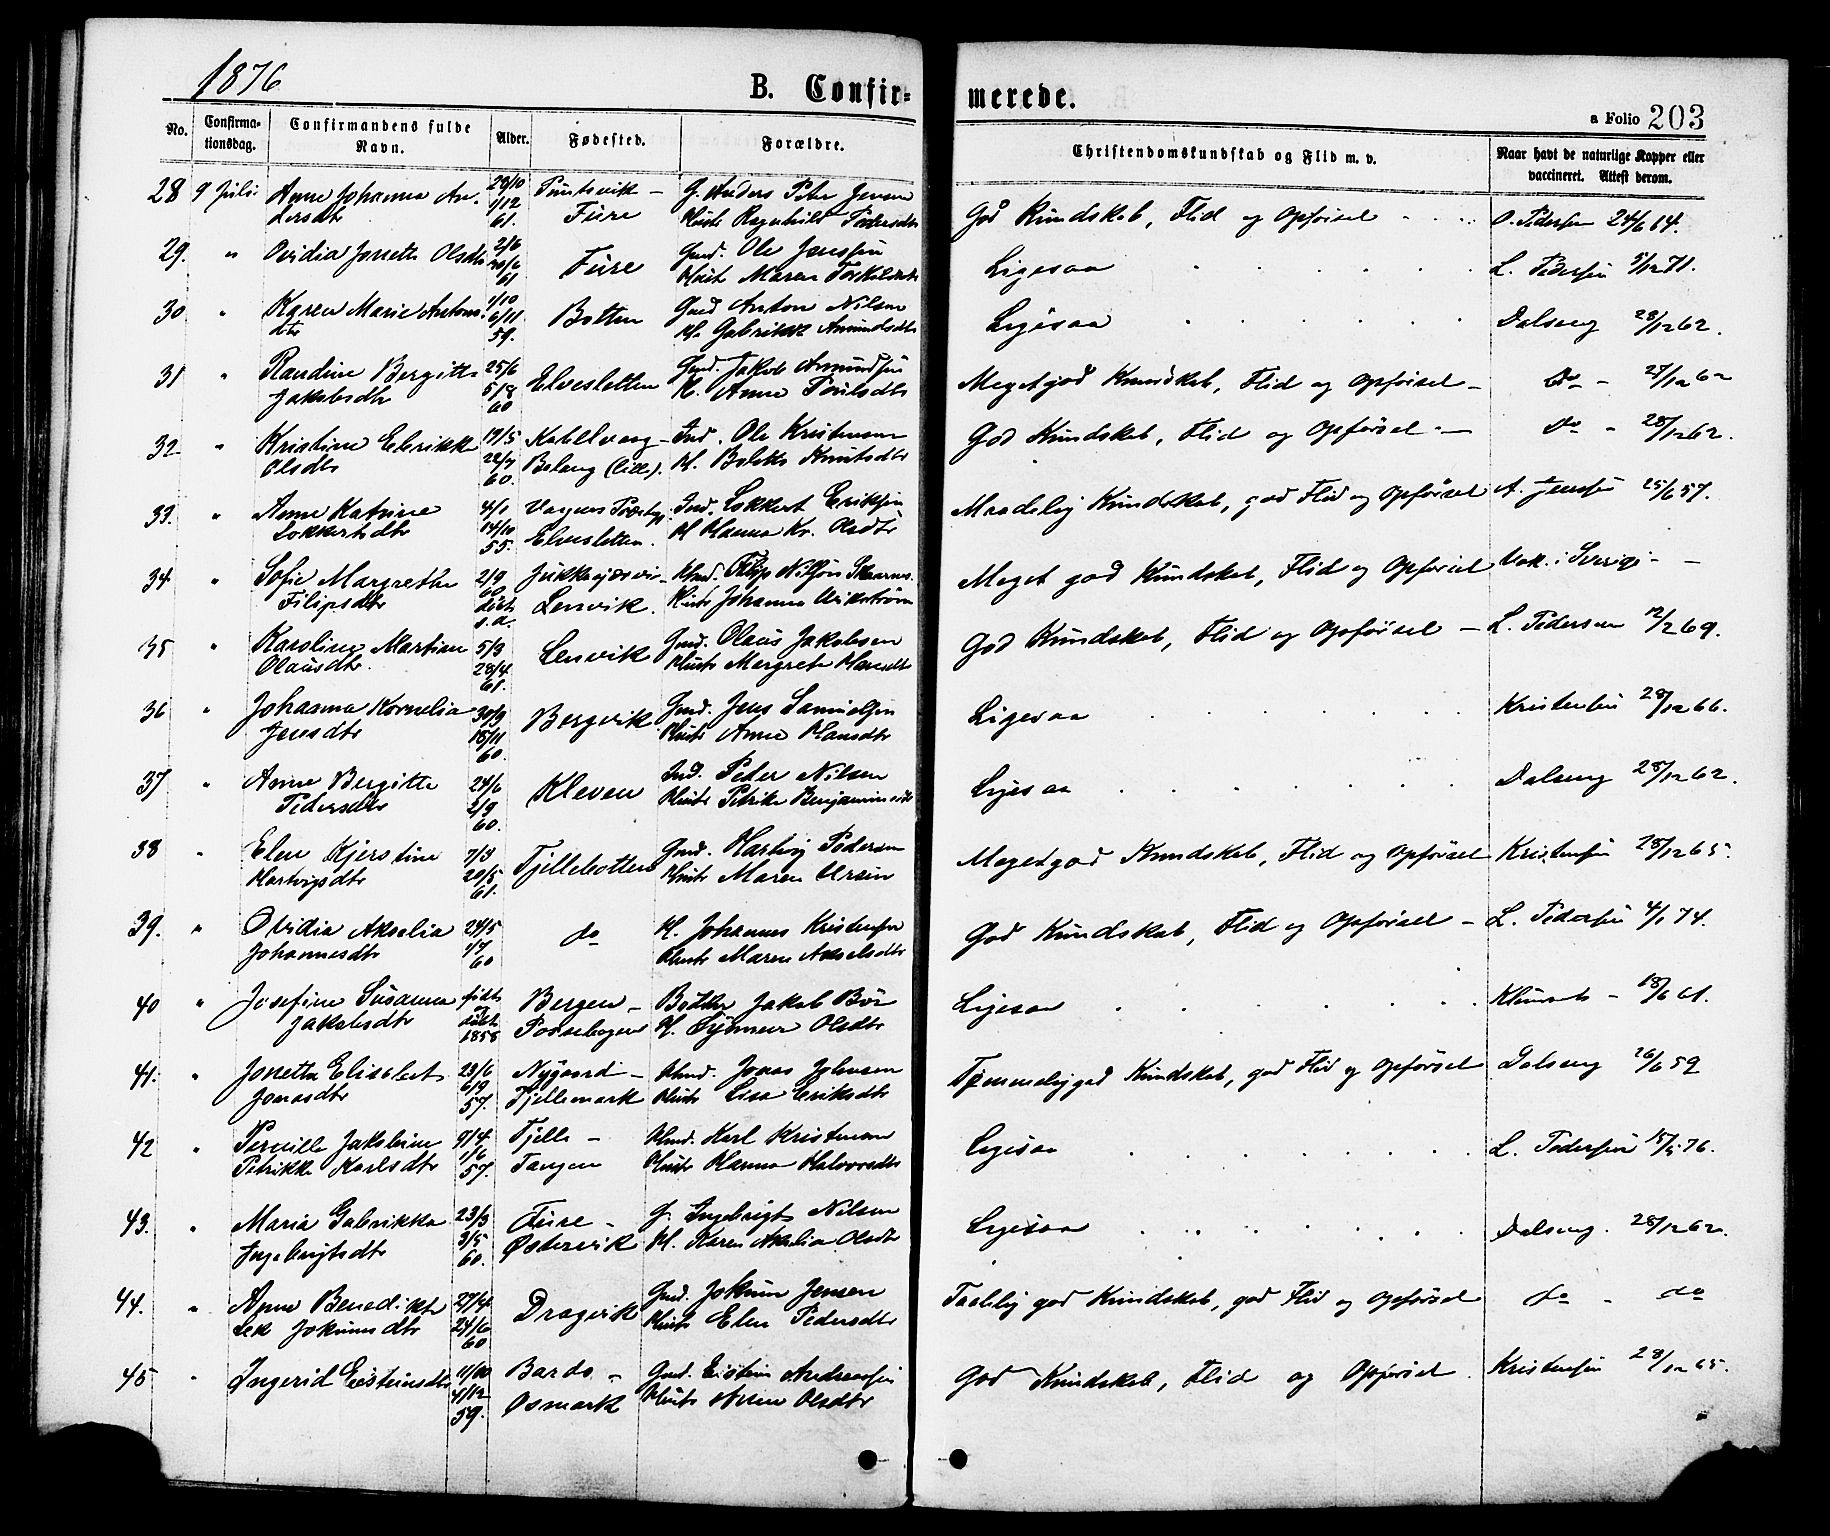 1876
B. Confir=
merede.
a Folio 203
No.
Confirma-
tionsdag.
Confirmandens fulde
Navn.
Alder.
Fødested.
Forældre.
Christendomskundskab og Flid m. v.
Naar havt de naturlige Kopper eller
vaccineret. Attest derom.
28 9 Juli Anne Johanna An- 29/10 - G. Anders Peter Jensen God Kundskab, Flid og Opførsel O. Pedersen 24/6 64.
dersdtr 1/12 61. Fure Hustr Ragnhild Pedersdtr
29. " Ovidia Jonette Olsdtr 2/6 Fure Gmd. Ole Jenssen Ligesaa L. Pedersen 5/12 71.
61 Hustr Maren
30 " Karen Marie Antons. 1/10 Botten Gmd Anton Nilsen Ligesaa Dalseng 28/12 62.
dtr 6/11 59. H. Gabrikke Amundsdtr
31 " Randine Bergitte 25/6 Elvesletten Gmd. Jakob Amundsen Megetgod Kundskab, Flid og Opførsel - do - 27/12 62
Jakobsdtr 5/8 60 H. Anne Poulsdtr
32 " Kristine Elerikke 19/5 - Ind. Ole Kristensen God Kundskab, Flid og Opførsel - do - 28/12 62.
Olsdtr 22/7 60. (lille). H. Knutsdtr
33. " Anne Katrine 4/1 Ind. Lokkert Eriksen Maadelig Kundskab, god Flid og Opførsel A. Jenssen 25/6 57.
Lokkertsdtr 14/10 55. Elvesletten. H Hanna Kr. Olsdtr
34 " Sofie Margrethe 2/9 Jukkasjærvi- Filip Nilsson Meget god Kundskab, Flid og Opførsel Vak. i Sverige -
Filipsdtr 60 døbt s.a. Lenvik. Hustr Johanna
35 " Karoline Martine 5/3 Lenvik Gmd. Olaus Jakobsen God Kundskab, Flid og Opførsel - L. Pedersen 12/2 69.
Olausdtr. 28/4 61. Hustr Margrete Hansdtr
36 " Johanna Kornelia 30/9 Bergvik Gmd. Jens Samuelsen Ligesaa Kristensen 28/12 66.
Jensdtr 18/11 60. Hustr Anne Hansdtr
37 " Anne Bergitte 24/6 Kleven Ind. Peder Nilsen Ligesaa Dalseng 28/12 62.
Pedersdtr 2/9 60. Hustr Petrike Benjaminsdtr
38 " Elen Kjerstine 7/3 Tjellebotten Gmd. Hartvig Pedersen Megetgod Kundskab, Flid og Opførsel Kristensen 28/12 65.
Hartvigsdtr 20/5 61. Hustr Maren Ursin
39. " Ovidia Akselia 24/5 do H. Johannes Kristensen God Kundskab, Flid og Opførsel - L. Pedersen 4/1 74.
Johannesdtr 1/7 60 Hustr Maren Akselsdtr
40 " Josefine Susanna født Bergen - Jakob Ligesaa 18/6 61.
Jakobsdtr og døbt 1858 H. Olsdtr
41. " Jonetta Elisabet 23/6 Nygaard - Jonas Johnsen Temmelig god Kundskab, god Flid og Opførsel Dalseng 26/6 59
Jonasdtr 6/9 57. Tjellemark Hustr Lisa Eriksdtr
42 " Pernille Jakobine 9/4 Tjelle - Karl Kristensen Ligesaa L. Pedersen 15/5 76.
Petrikke Karlsdtr 1/6 57. Tangen Hustr Hanna Halvorsdtr
43. " Maria Gabrikka 23/3 Fure - G. Ingebrigt Nilsen Ligesaa Dalseng. 28/12 62.
Ingebrigtsdtr 3/5 60. Østervik H. Karen Akselia Olsdtr
44. " Anne Benedikte 27/4 Dragvik Gmd. Jokum Jensen Taalelig god Kundskab, god Flid og Opførsel do - do
Lek Jokumsdtr 24/6 60 Hustr Elen Pedersdtr
45 " Ingerid Eisteinsdtr 11/10 Bardo - Gmd. Eistein Andreassen God Kundskab, Flid og Opførsel Kristensen 28/12 65.
11/12 59. Øsmark Hustr Olsdtr